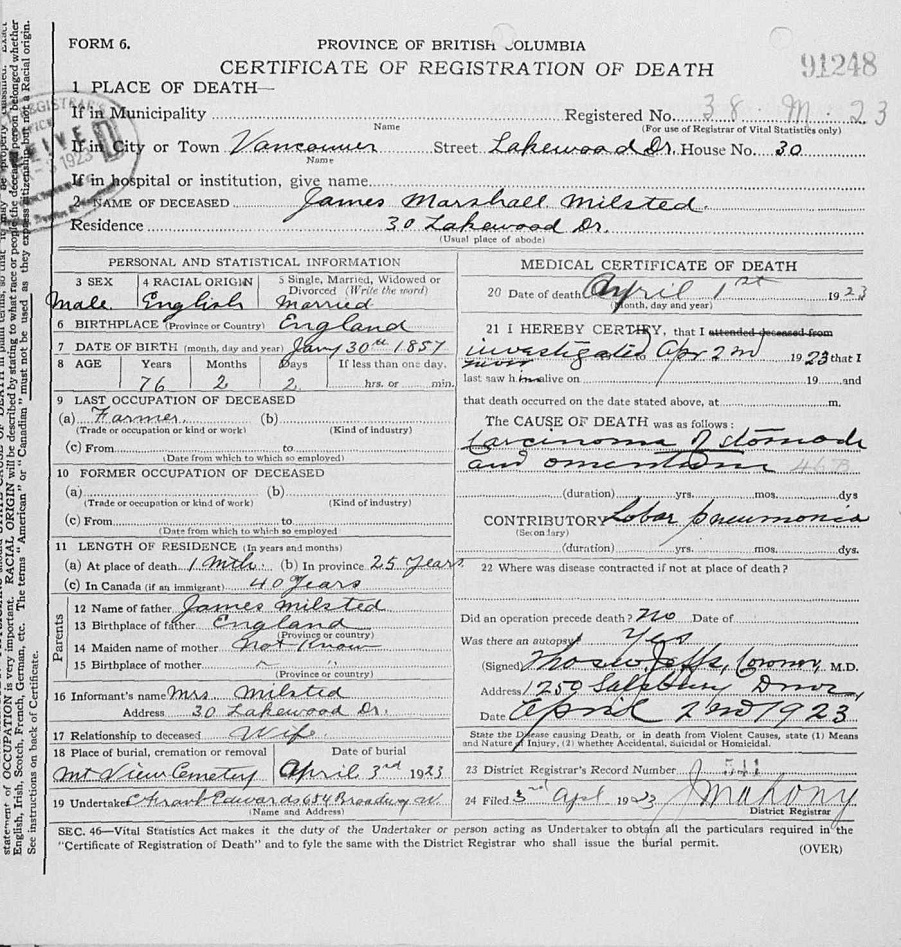 FORM 6.
PROVINCE OF BRITISH COLUMBIA
CERTIFICATE OF REGISTRATION OF DEATH
91248
1 PLACE OF DEATH—
If in Municipality Registered No. 38 · M · 23
Name (For use of Registrar of Vital Statistics only)
If in City or Town Vancouver Street Lakewood Dr. House No. 30
Name
If in hospital or institution, give name
2 NAME OF DECEASED James Marshall Milsted.
Residence 30 Lakewood Dr.
(Usual place of abode)
PERSONAL AND STATISTICAL INFORMATION
3 SEX 4 RACIAL ORIGIN 5 Single, Married, Widowed or
Divorced (Write the word)
Male English Married
6 BIRTHPLACE (Province or Country) England
7 DATE OF BIRTH (month, day and year) Jany 30th 1857
8 AGE Years Months Days If less than one day,
76 2 2 hrs. or min.
9 LAST OCCUPATION OF DECEASED
(a) Farmer (b)
(Trade or occupation or kind or work) (Kind of industry)
(c) From to
(Date from which to which so employed)
10 FORMER OCCUPATION OF DECEASED
(a) (b)
(Trade or occupation or kind of work) (Kind of industry)
(c) From to
(Date from which to which so employed
11 LENGTH OF RESIDENCE (In years and months)
(a) At place of death 1 Mth. (b) In province 25 Years.
(c) In Canada (if an immigrant) 40 Years
Parents
12 Name of father James Milsted
13 Birthplace of father England
(Province or country)
14 Maiden name of mother Not Know
15 Birthplace of mother " "
(Province or country)
16 Informant's name Mrs Milsted
Address 30 Lakewood Dr.
17 Relationship to deceased Wife.
18 Place of burial, cremation or removal Date of burial
Mt View Cemetery April 3rd 1923
19 Undertaker Edwards Broadway W.
(Name and Address)
MEDICAL CERTIFICATE OF DEATH
20 Date of death April 1st 1923
(Month, day and year)
21 I HEREBY CERTIFY, that I attended deceased from
investigated Apr 2nd 1923 that I
never
last saw him alive on 19 and
that death occurred on the date stated above, at m.
The CAUSE OF DEATH was as follows:
Carcinoma of stomach
and omentum 46B
(duration) yrs. mos. dys
CONTRIBUTORY Lobar pneumonia
(Secondary)
(duration) yrs. mos. dys.
22 Where was disease contracted if not at place of death?
Did an operation precede death? No Date of
Was there an autopsy? Yes
(Signed) Jeffs, Coronor, M.D.
Address 1250 Salsbury Drive,
Date April 2nd 1923
State the Disease causing Death, or in death from Violent Causes, state (1) Means
and Nature of Injury, (2) whether Accidental, suicidal or Homicidal.
23 District Registrar's Record Number 541
24 Filed 3rd Apr 1923 J Mahony
District Registrar
SEC. 46—Vital Statistics Act makes it the duty of the Undertaker or person acting as Undertaker to obtain all the particulars required in the
"Certificate of Registration of Death" and to fyle the same with the District Registrar who shall issue the burial permit.
(OVER)
statement of OCCUPATION is very important. RACIAL ORIGIN will be described by stating to what race or people the deceased person belonged whether
English, Irish, Scotch, French, German, etc. The terms "American" or "Canadian" must not be used as they express citizenship but not a Racial origin.
See instructions on back of Certificate.